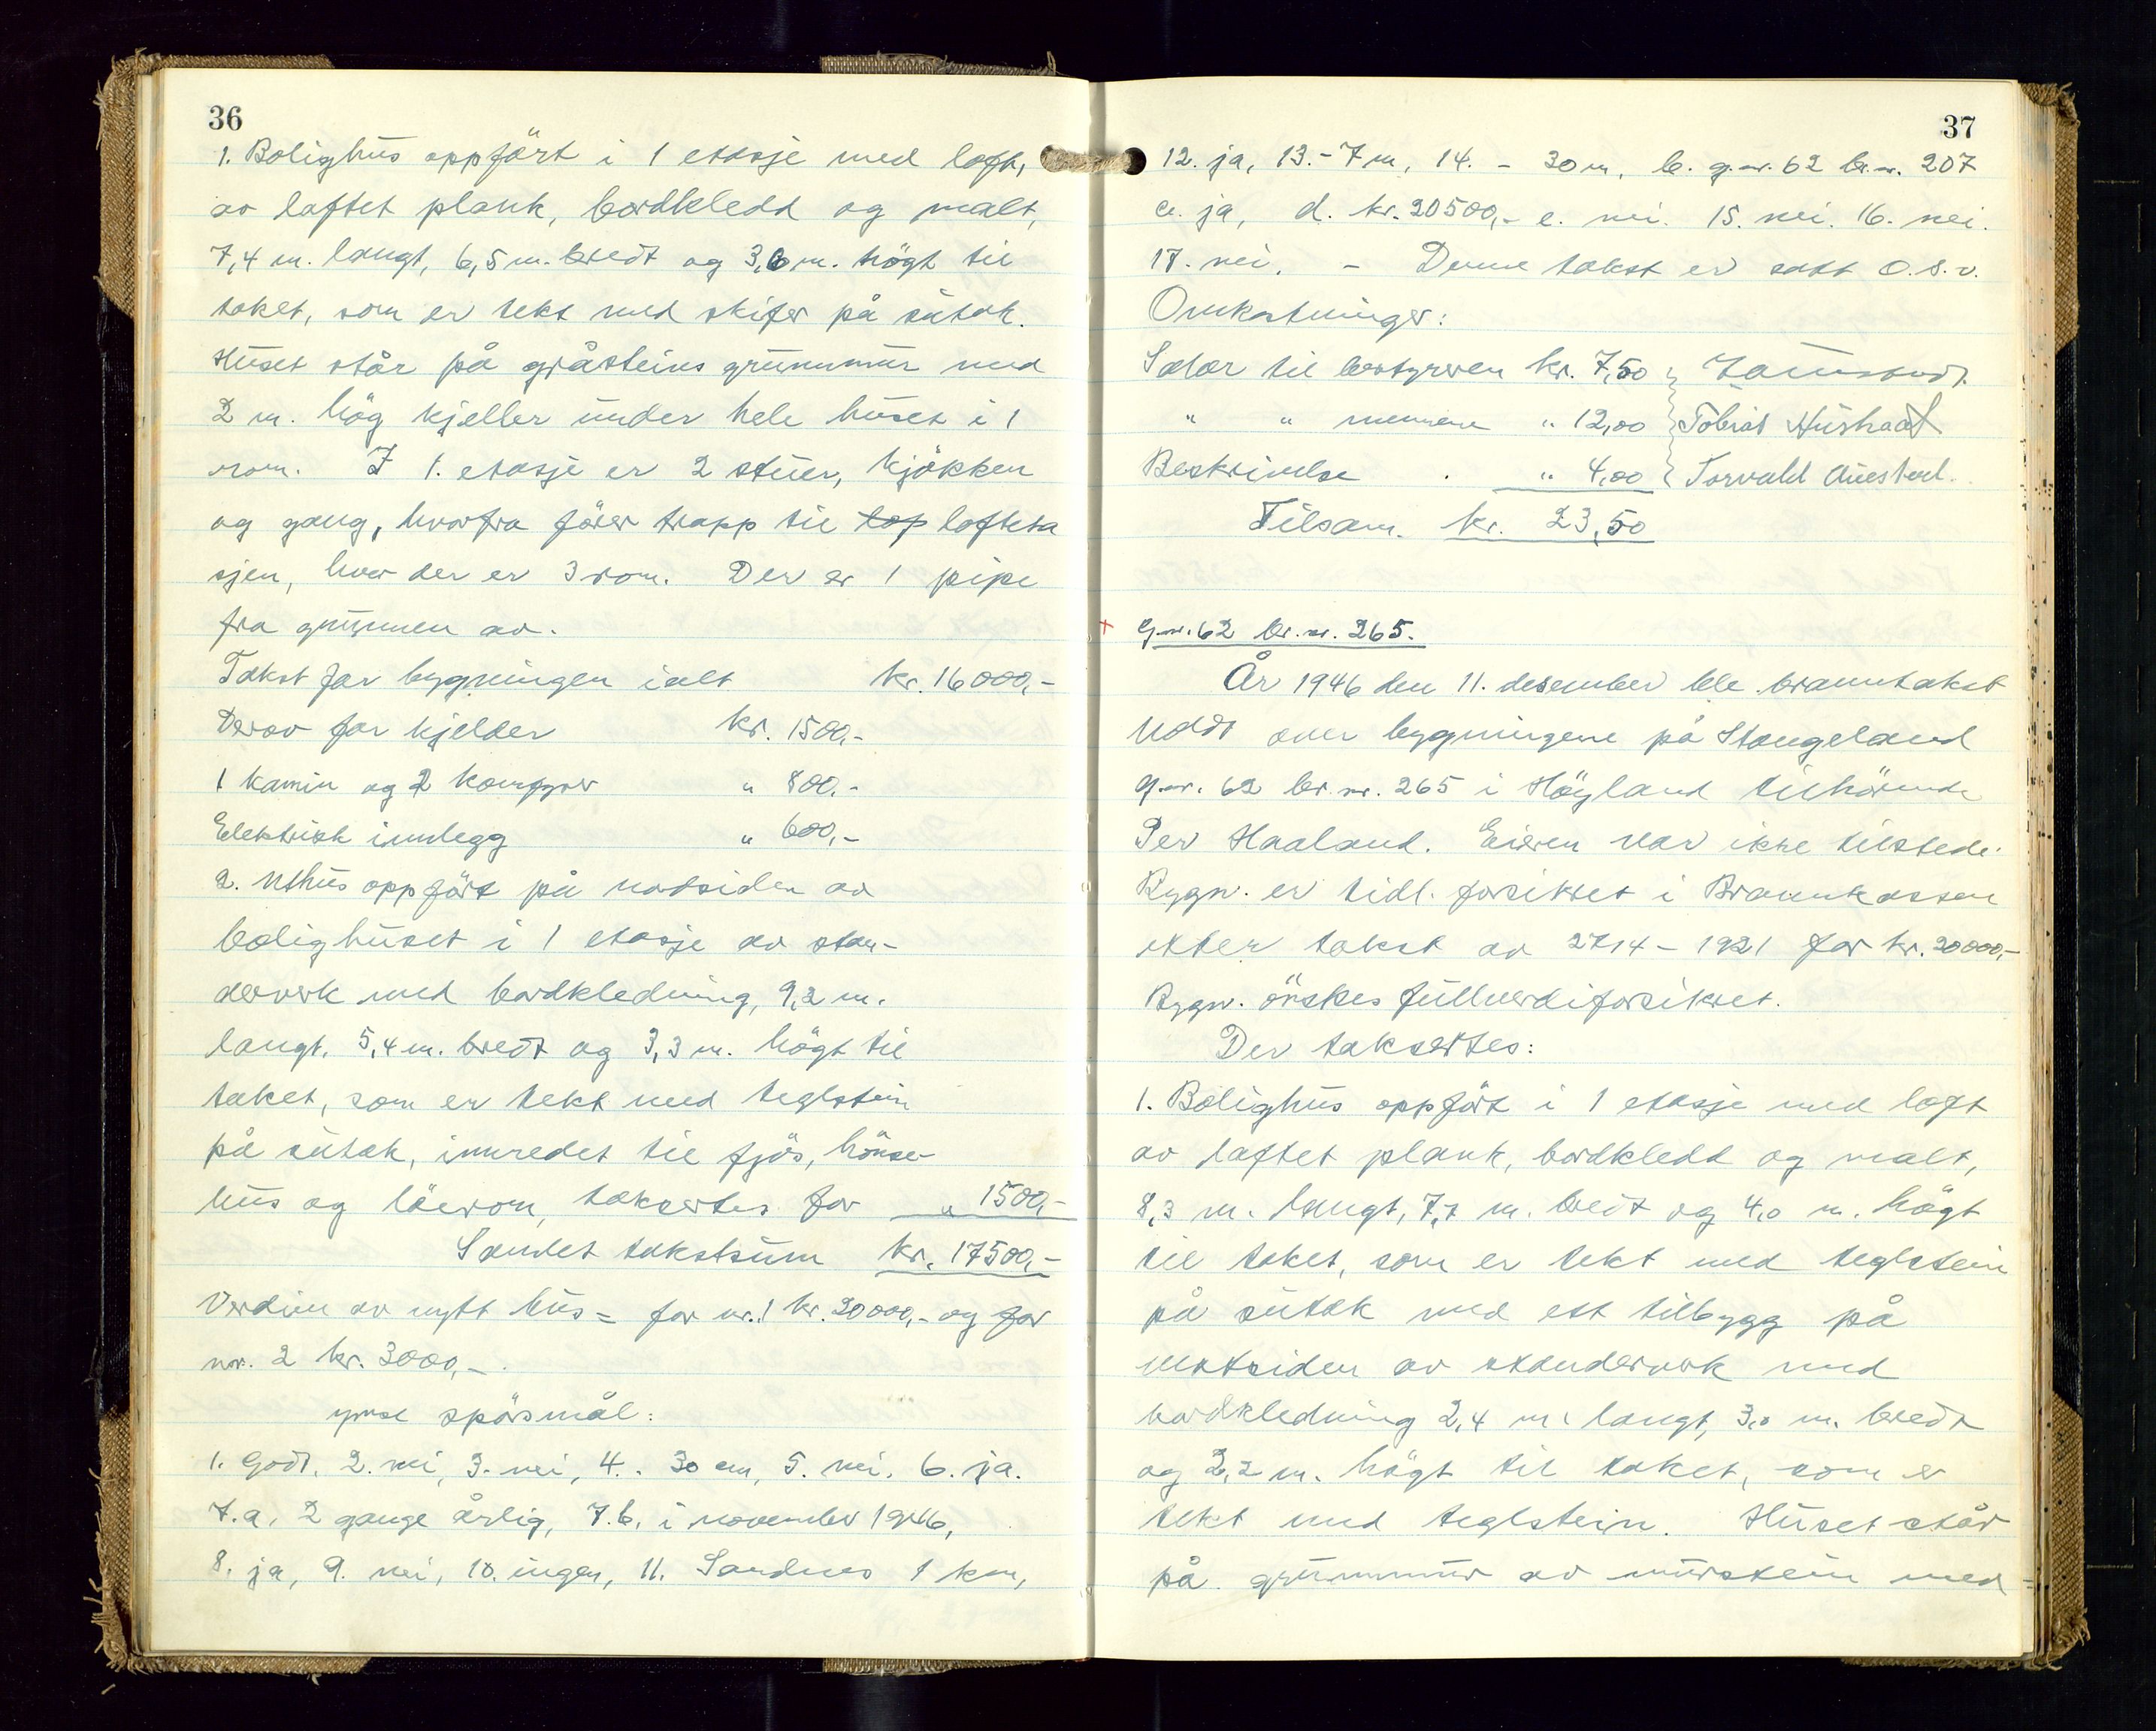 36
1. Bolighus oppfört i 1 etasje med loft,
av laftet plank, bordkledd og malt,
7,4 m. langt, 6,5 m. bredt og 3,6 m. högt til
taket, som er tekt med skifer på sutak.
Huset står på gråsteins grunnmur med
2 m. hög kjeller under hele huset i 1
rom. I 1. etasje er 2 stuer, kjökken
og gang, hvorfra förer trapp til top lofteta
sjen, hvor der er 3 rom. Der er 1 pipe
fra grunnen av.
Takst for bygningen ialt kr. 16000,-
Derav for kjelder kr. 1500,-
1 kamin og 2 komfyrer " 800,-
Elektrisk innlegg " 600,-
2. Uthus oppfört på nordsiden av
bolighuset i 1 etasje av sten-
derverk med bordkledning, 9,2 m.
langt, 5,4 m. bredt og 3,3 m. högt til
taket, som er tekt med teglstein
på sutak, innredet til fjös, hönse-
hus og låerom, taksertes for " 1500,-
Samlet takstsum kr. 17500,-
Verdien av nytt hus = for nr. 1 kr. 20000,- og for
nr. 2 kr. 3000,-.
Ymse spörsmål:
1. Godt, 2. nei, 3. nei, 4. - 30 cm, 5. nei. 6. ja.
7.a, 2 gange årlig, 7.b. i november 1946,
8. ja, 9. nei, 10. ingen, 11. Sandnes 1 km,
37
12. ja, 13. - 7 m, 14. - 30 m, b. g.nr. 62 br.nr. 207
c. ja, d. kr. 20500,- e. nei. 15. nei. 16. nei.
17. nei. - Denne takst er satt O.s.v.
Omkostninger:
Salær til bestyreren kr. 7,50
" " mennene " 12,00 Tobias Hushad
Beskrivelse " 4,00 Torvald Auestad.
Tilsam. kr. 23,50
G.nr. 62 br.nr. 265.
År 1946 den 11. desember ble branntakst
holdt over bygningene på Stangeland
g.nr. 62 br.nr. 265 i Höyland tilhörende
Per Haaland. Eieren var ikke tilstede.
Bygn. er tidl. forsikret i Brannkassen
etter takst av 27/4 - 1921 for kr. 20000,-
Bygn. önskes fullverdiforsikret.
Der taksertes:
1. Bolighus oppfört i 1 etasje med loft
av laftet plank, bordkledd og malt,
8,3 m. langt, 7,7 m. bredt og 4,0 m. högt
til taket, som er tekt med teglstein
på sutak med ett tilbygg på
vestsiden av standerverk med
bordkledning 2,4 m. langt, 3,0 m. bredt
og 2,2 m. högt til taket, som er
tekt med teglstein. Huset står
på grunnmur av murstein med